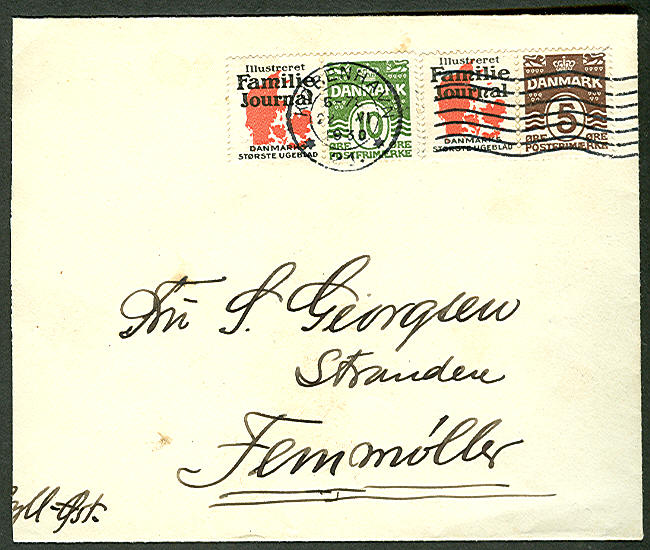 Illustreret
Familie
Journal
DANMARKS
STØRSTE UGEBLAD
DANMARK
10
ØRE ØRE
POSTFRIMÆRKE
KØBENHAVN
Illustreret
Familie
Journal
DANMARKS
STØRSTE UGEBLAD
DANMARK
5
ØRE ØRE
POSTFRIMÆRKE
S. Georgsen
Stranden
Femmøller